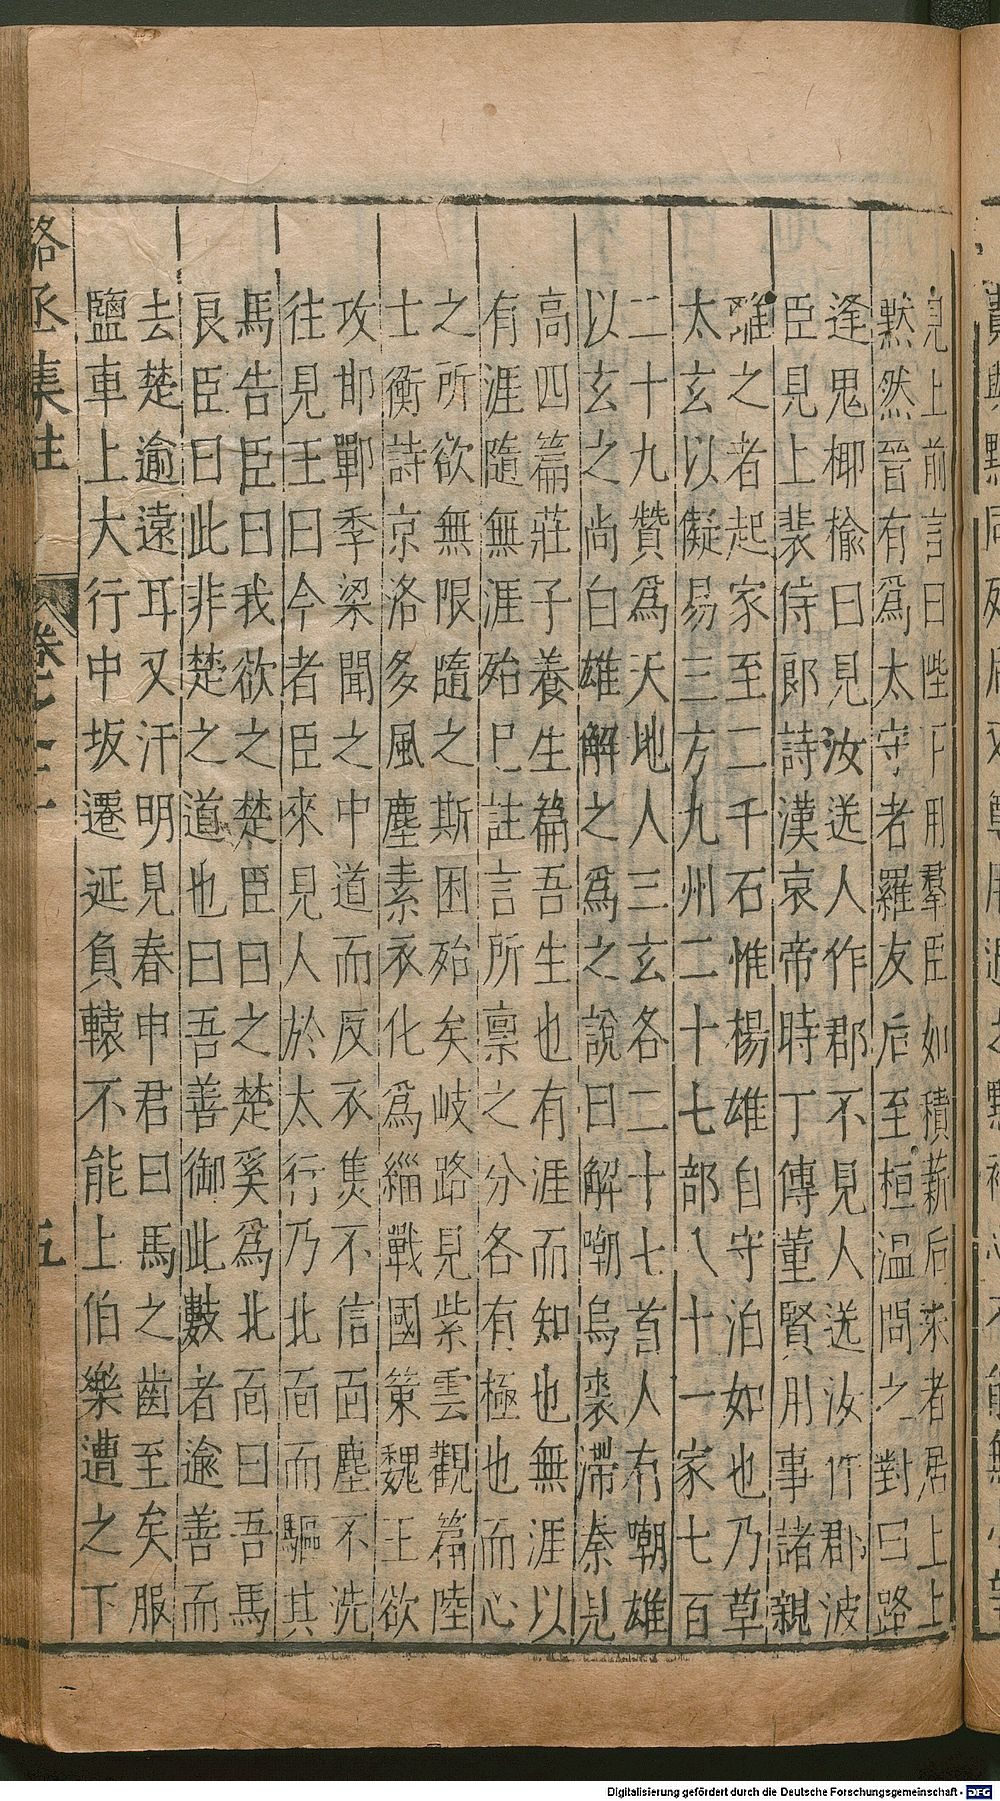 見上前言曰陛下用羣臣如積薪后来者居上上
黙然晉有爲太守者羅友后至桓温問之對曰路
逢鬼椰榆曰見汝送人作郡不見人送汝作郡波
臣見上裴侍郎詩漢哀帝時丁傳董賢用事諸親
雖之者起家至二千石惟楊雄自守泊如也乃草
太玄以儗易三方九州二十七部八十一家七百
二十九贊爲天地人三玄各二十七首人有嘲雄
以玄之尚白雄解之爲之說曰解嘲烏裘滯秦見
高四篇莊子養生篇吾生也有涯而知也無涯以
有涯隨無涯殆巳註言所禀之分各有極也而心
之所欲無限隨之斯困殆矣岐路見紫雲觀篇陸
士衡詩京洛多風塵素衣化爲緇戰國策魏王欲
攻邯鄲季梁聞之中道而反衣焦不信面塵不洗
往見王曰今者臣來見人於太行乃北面而驅其
馬告臣曰我欲之楚臣曰之楚奚爲北面曰吾馬
良臣曰此非楚之道也曰吾善御此數者逾善而
去楚逾遠耳又汗明見春申君曰馬之齒至矣服
鹽車上大行中坂遷延負轅不能上伯樂遭之下
駱丞集註 卷之 五
Digitalisierung gefördert durch die Deutsche Forschungsgemeinschaft - DFG